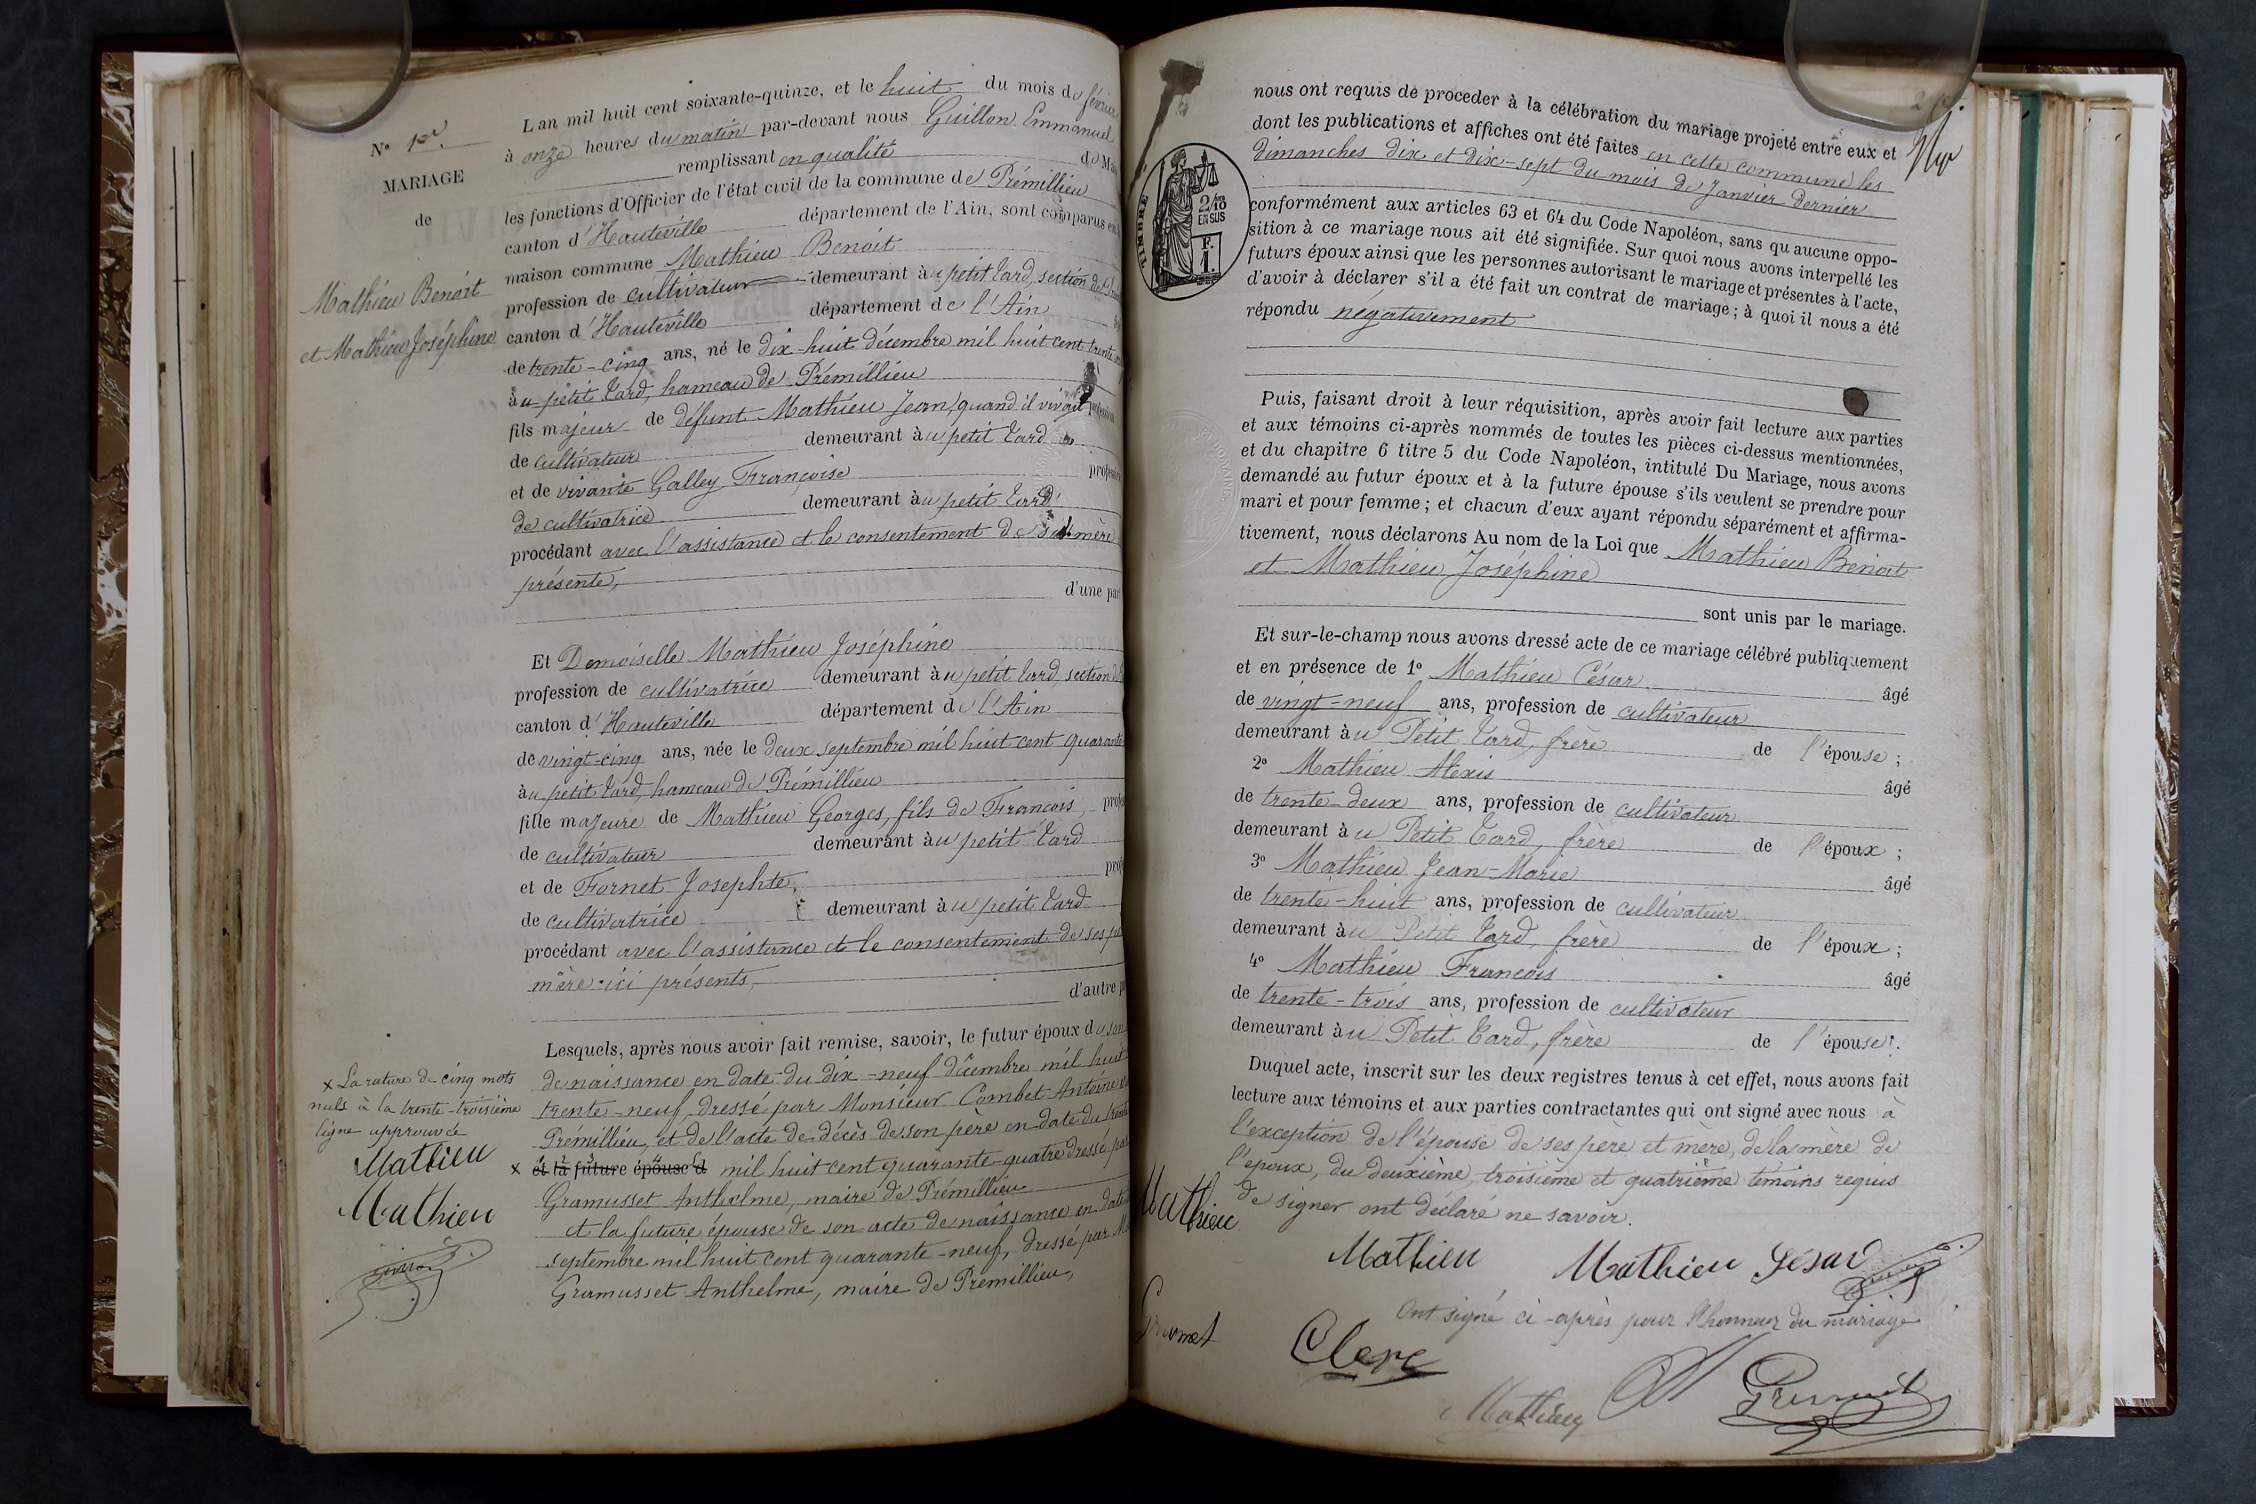 N° 1er
MARIAGE
de
Mathieu Benoit
et Mathieu Joséphine
L an mil huit cent soixante-quinze, et le huit du mois de février
à onze heures du matin par-devant nous Guillon Emmanuel
remplissant en qualité de
les fonctions d'Officier de l'état civil de la commune de Prémillieu
canton d'Hauteville département de l'Ain, sont comparus en
maison commune Mathieu Benoit
profession de cultivateur demeurant au petit Tard, section de
canton d'Hauteville département de l'Ain
de trente-cinq ans, né le dix-huit décembre mil huit cent trente
au petit Tard, hameau de Prémillieu
fils majeur de défunt Mathieu Jean, quand il vivait
de cultivateur demeurant au petit Tard
et de vivante Galley Françoise
de cultivatrice demeurant au petit Tard
procédant avec l'assistance et le consentement de sa mère
présente,
d'une par
Et Demoiselle Mathieu Joséphine
profession de cultivatrice demeurant au petit Tard, section
canton d'Hauteville département de l'Ain
de vingt-cinq ans, née le deux septembre mil huit cent quarante
au petit Tard, hameau de Prémillieu
fille majeure de Mathieu Georges, fils de François,
de cultivateur demeurant au petit Tard
et de Fornet Josephte,
de cultivatrice demeurant au petit Tard
procédant avec l'assistance et le consentement de ses
mère ici présents,
d'autre
Lesquels, après nous avoir fait remise, savoir, le futur époux de son
de naissance en date du dix-neuf décembre mil huit
trente-neuf, dressé par Monsieur Combet Antoine
Prémillieu, et de l'acte de décès de son père en date du trente
x et la future épouse d mil huit cent quarante-quatre dressé par
Gramusset Anthelme, maire de Prémillieu
et la future épouse de son acte de naissance en date
septembre mil huit cent quarante-neuf, dressé par
Gramusset Anthelme, maire de Prémillieu,
x La rature de cinq mots
nuls à la trente-troisième
ligne approuvée
Mathieu
Mathieu
nous ont requis de proceder à la célébration du mariage projeté entre eux et
dont les publications et affiches ont été faites en cette commune les
dimanches dix et dix-sept du mois de Janvier dernier
TIMBRE
2/10
EN SUS
F.
1.
conformément aux articles 63 et 64 du Code Napoléon, sans qu aucune oppo-
sition à ce mariage nous ait été signifiée. Sur quoi nous avons interpellé les
futurs époux ainsi que les personnes autorisant le mariage et présentes à l'acte,
d'avoir à déclarer s'il a été fait un contrat de mariage ; à quoi il nous a été
répondu négativement
Puis, faisant droit à leur réquisition, après avoir fait lecture aux parties
et aux témoins ci-après nommés de toutes les pièces ci-dessus mentionnées,
et du chapitre 6 titre 5 du Code Napoléon, intitulé Du Mariage, nous avons
demandé au futur époux et à la future épouse s'ils veulent se prendre pour
mari et pour femme ; et chacun d'eux ayant répondu séparément et affirma-
tivement, nous déclarons Au nom de la Loi que Mathieu Benoit
et Mathieu Joséphine
sont unis par le mariage.
Et sur-le-champ nous avons dressé acte de ce mariage célébré publiquement
et en présence de 1° Mathieu César âgé
de vingt-neuf ans, profession de cultivateur
demeurant au Petit Tard, frère de l'épouse ;
2° Mathieu Alexis âgé
de trente-deux ans, profession de cultivateur
demeurant au Petit Tard, frère de l'époux ;
3° Mathieu Jean-Marie âgé
de trente-huit ans, profession de cultivateur
demeurant au Petit Tard, frère de l'époux ;
4° Mathieu François âgé
de trente-trois ans, profession de cultivateur
demeurant au Petit Tard, frère de l'épouse.
Duquel acte, inscrit sur les deux registres tenus à cet effet, nous avons fait
lecture aux témoins et aux parties contractantes qui ont signé avec nous à
l'exception de l'épouse de ses père et mère, de la mère de
l'époux, du deuxième, troisième et quatrième témoins requis
de signer ont déclaré ne savoir.
Mathieu
Mathieu Mathieu Césard
Ont signé ci-après pour l'honneur du mariage
Clerc
Mathieu